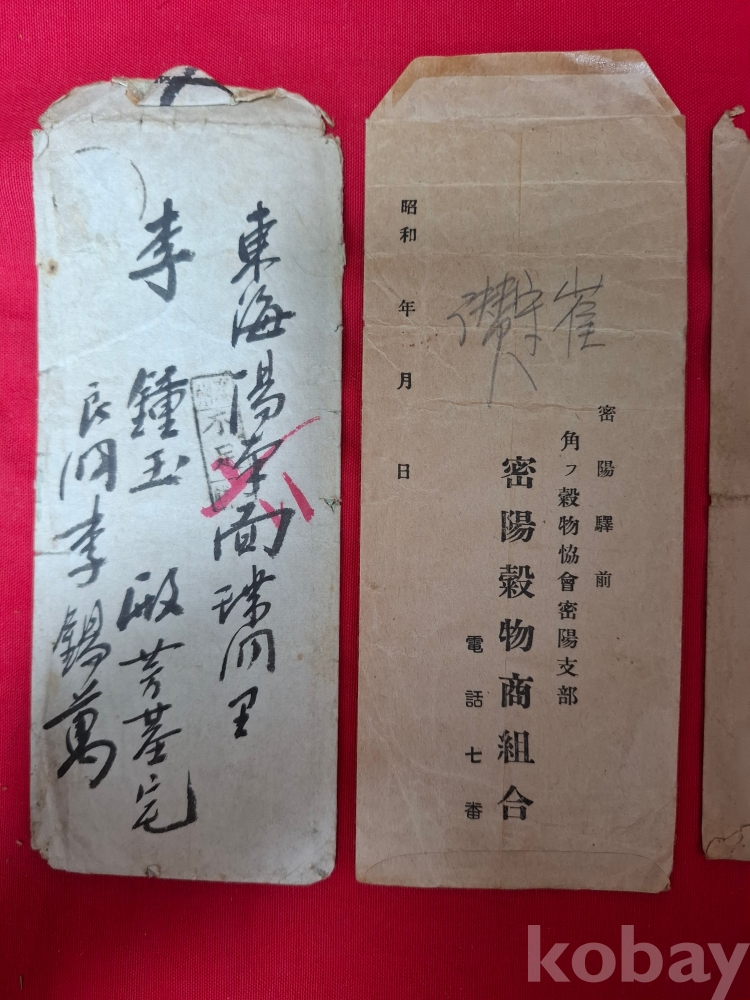 東海陽南面璞洞里
李鍾玉殿芳基宅
良洞李錫萬
不足
崔
密陽驛前
角フ穀物協會密陽支部
密陽穀物商組合
電話七番
昭和年月日
kobay